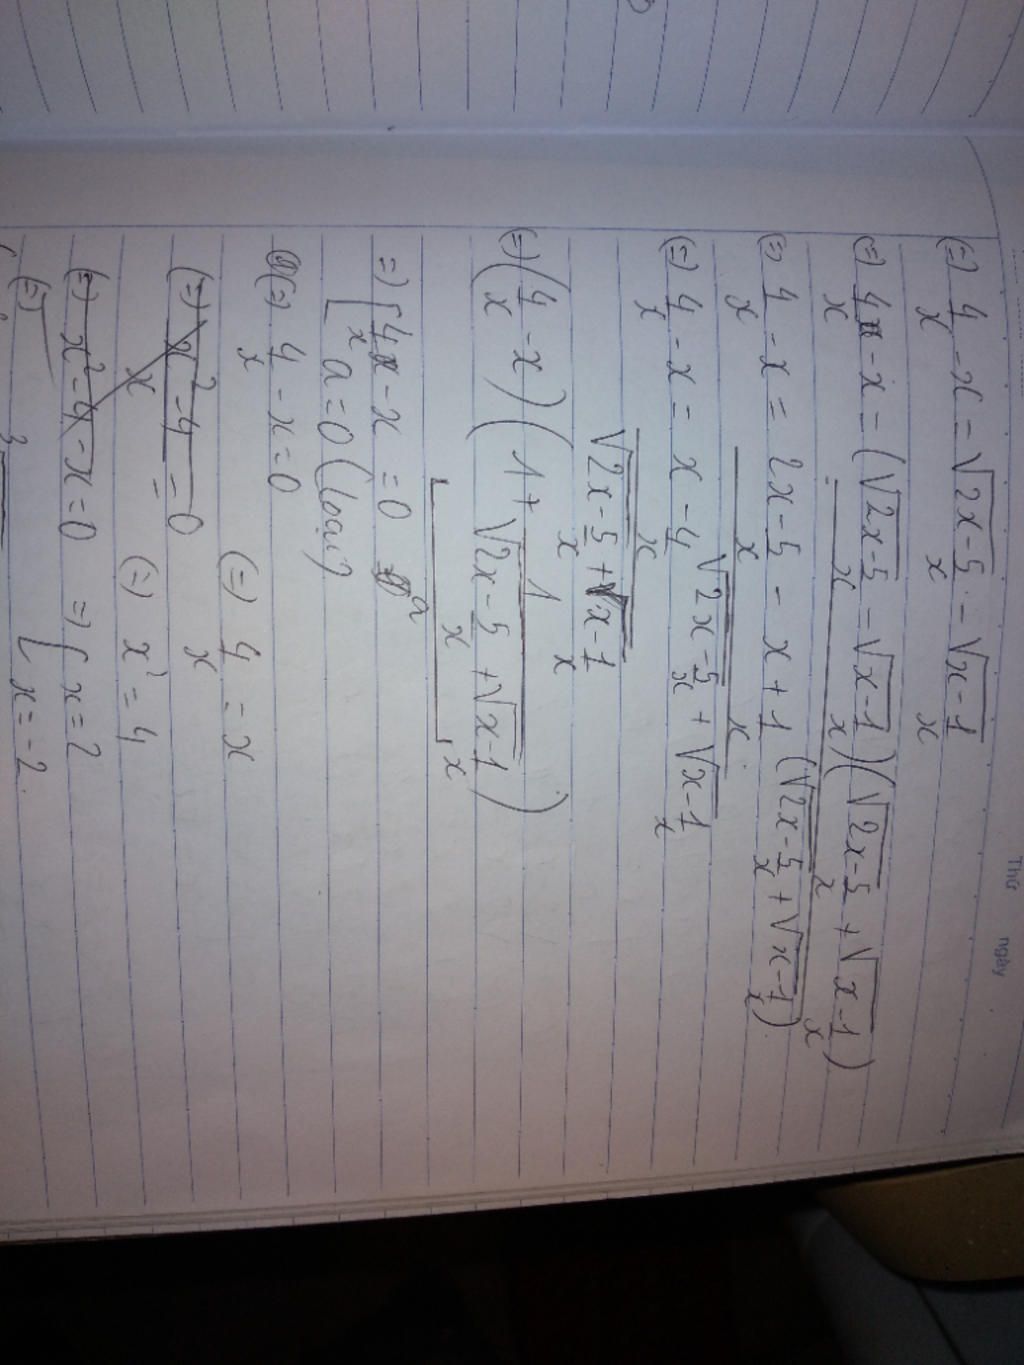 Thứ ngày
(=) 4/x - x = √(2x - 5/x) - √(x - 1/x)
(=) 4/x - x = (√(2x - 5/x) = √(x - 1/x))(√(2x - 5/x) + √(x - 1/x))
(=) 4/x - x = 2x - 5/x - x + 1/x (√(2x - 5/x) + √(x - 1/x))
(=) 4/x - x = x - 4/x √(2x - 5/x) + √(x - 1/x)
√(2x - 5/x) + √(x - 1/x)
(=) (4/x - x)(1 + 1/(√(2x - 5/x) + √(x - 1/x)))
=) [ 4/x - x = 0 a
a = 0 (loại)
(=) 4/x - x = 0 (=) 4/x = x
(=) x² - 4/x = 0 (=) x² = 4
(=) x² - 4 - x = 0 =) [ x = 2
(=) x = -2